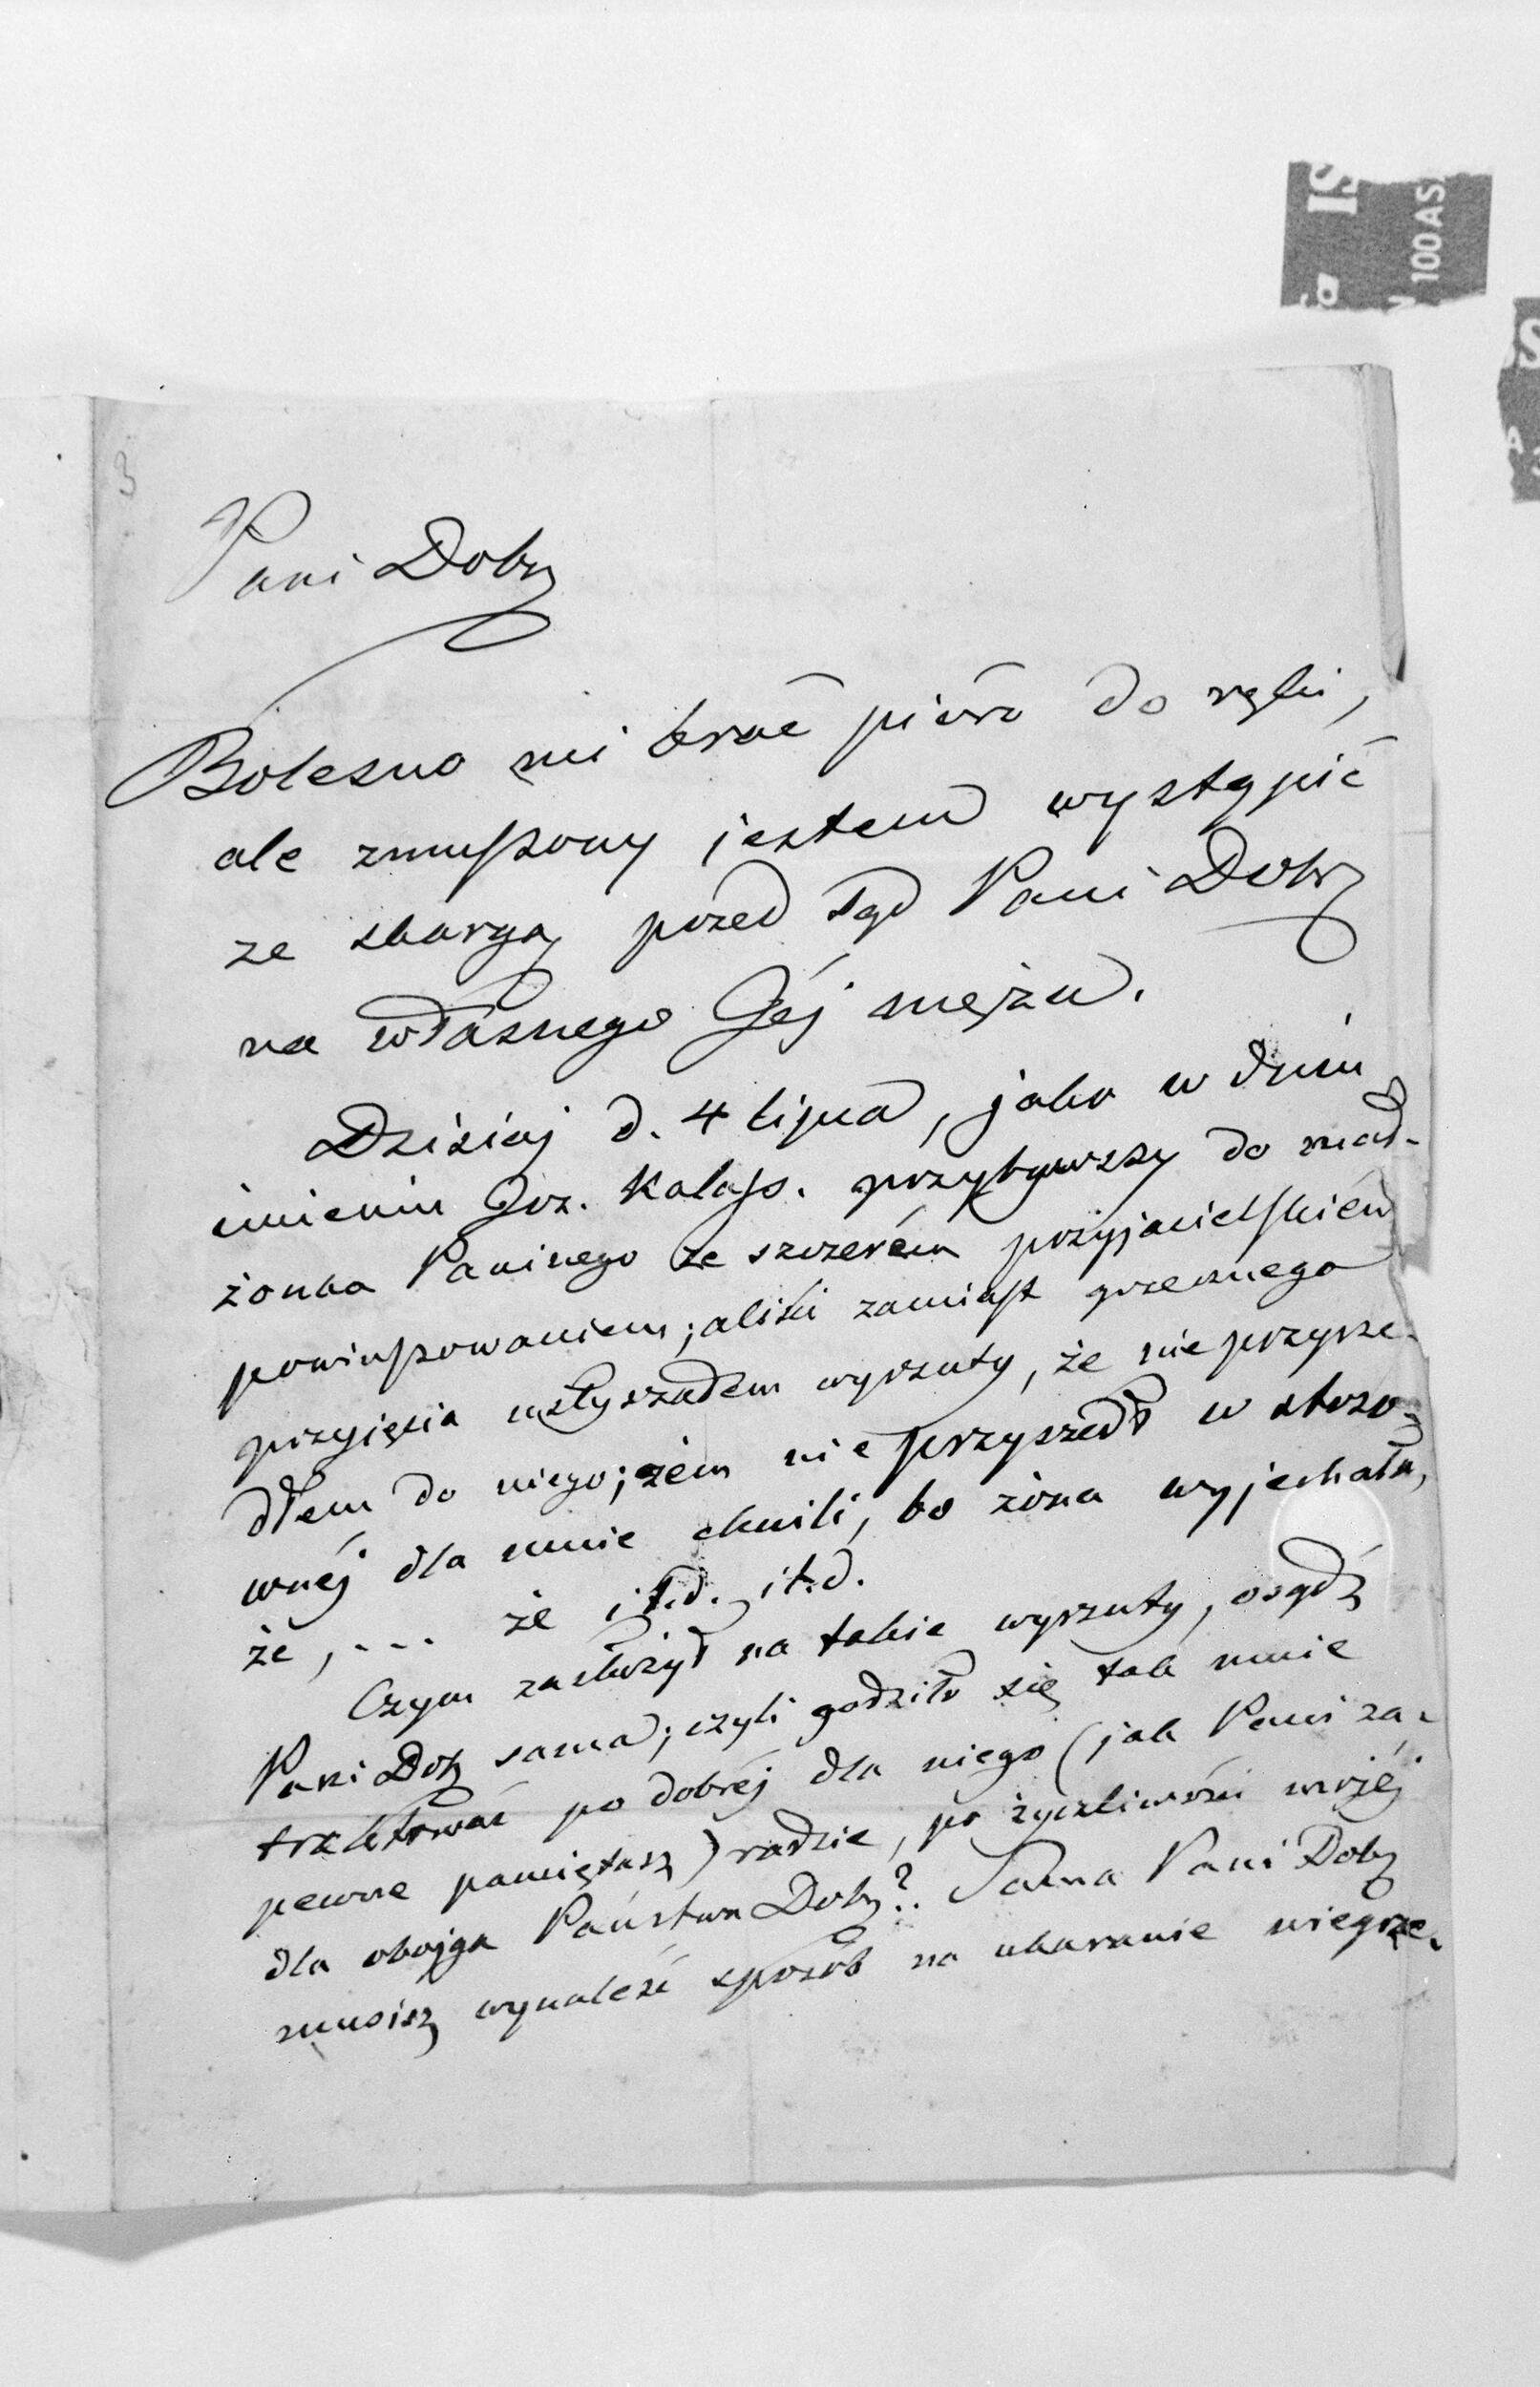 3
Pani Dobr
Bolesno mi brać pióro do ręki,
ale zmuszony jestem wystąpić
ze skargą przed sąd Pani Dobr
na własnego Jéj męża.
Dzisiaj d. 4 lipca, jako w dniu
imienin Joz. Kalas. przybywszy do mał-
żonka Paninego ze szczerém przyjacielskiém
powinszowaniem; aliści zamiast grzecznego
przyjęcia usłyszałem wyrzuty, że nie przysze-
dłem do niego; żem nie przyszedł w stoso-
wnéj dla mnie chwili, bo żona wyjechała,
że, ... że i t.d. i t.d.
Czym zasłużył na takie wyrzuty, osądź
Pani Dob sama; czyli godziło się tak mnie
traktować po dobréj dla niego (jak Pani za-
pewne pamiętasz) radzie, po życzliwości mojéj
dla obojga Państwa Dobr?.. Sama Pani Dobr
musisz wynaleźć sposób na ukaranie niegrze-
IS
100 AS